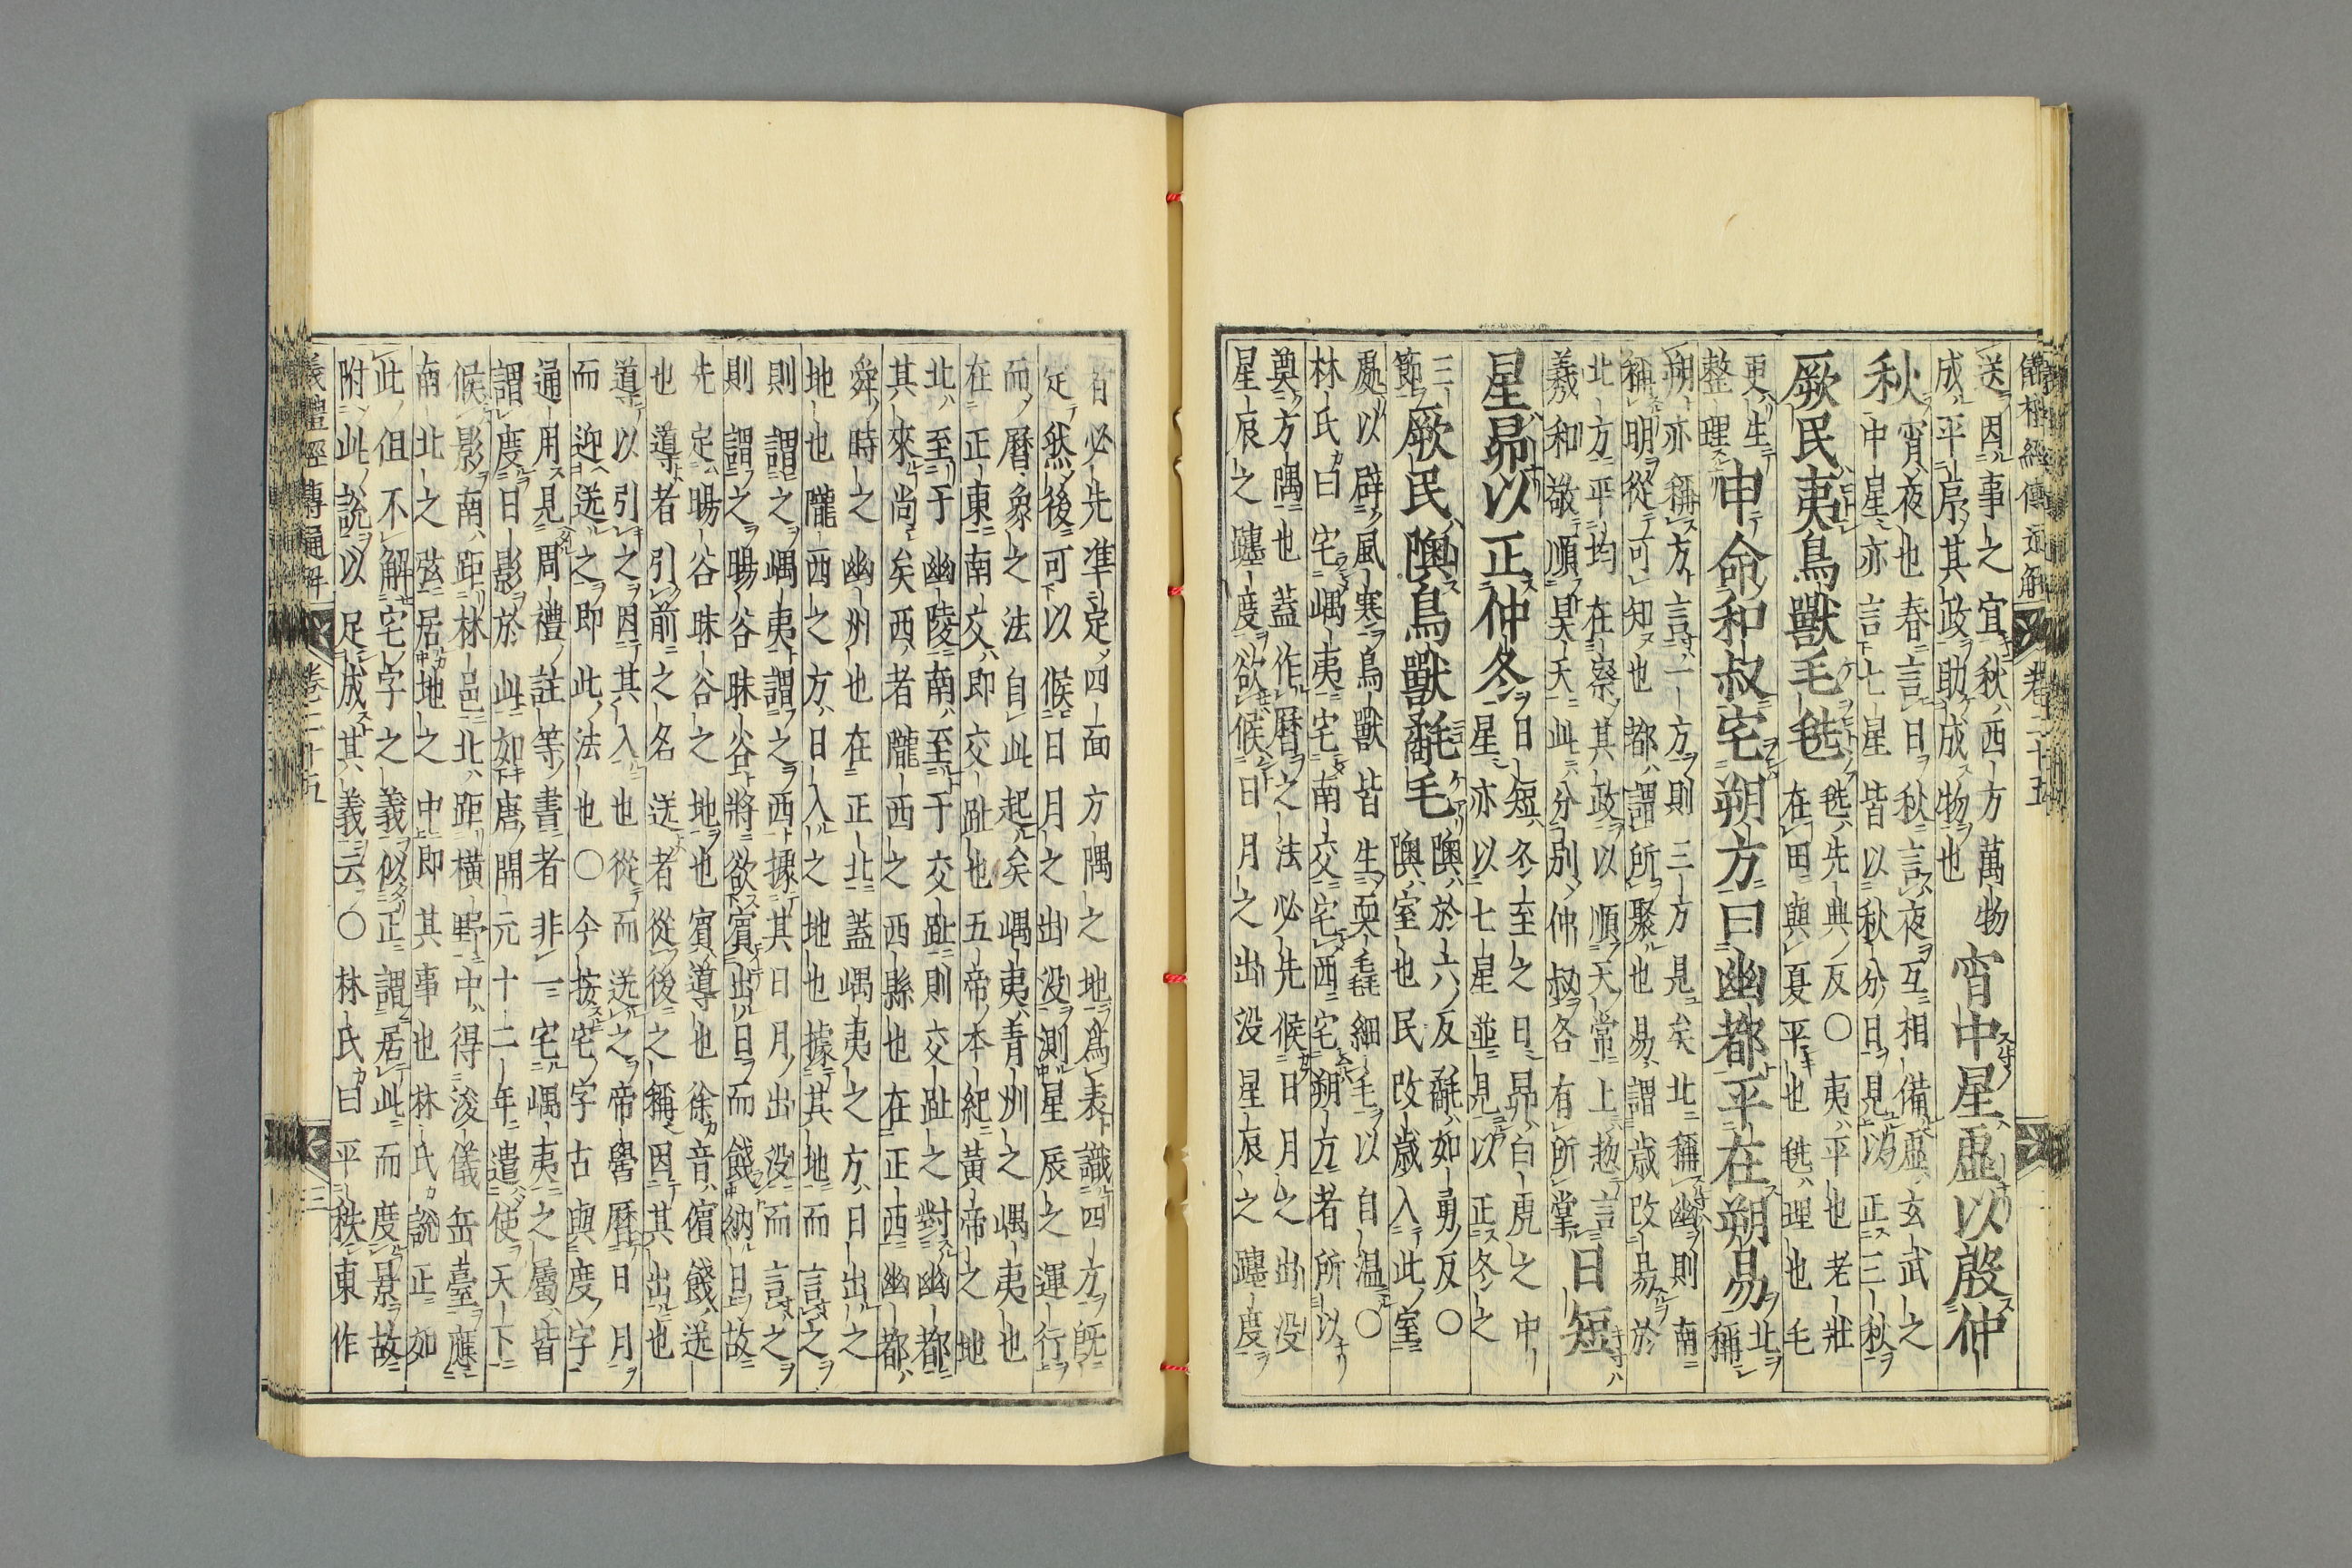 儀禮經傳通解 卷二十五
送因事之宜秋西方萬物
成平序其政助成物也
宵中星虛以殷仲
秋
宵夜也春言日秋言夜互相備虛玄武之
中星亦言七星皆以秋分日見以正三秋
厥民夷鳥獸毛毨
毨先典反○夷平也老壯
在田與夏平也毨理也毛
更生
整理
申命和叔宅朔方曰幽都平在朔易
北
稱
朔亦稱方言一方則三方見矣北稱幽則南
稱明從可知也都謂所聚也易謂歲改易於
北方平均在察其政以順天常上揔言
羲和敬順昊天此分別仲叔各有所掌
日短
星昴以正仲冬
日短冬至之日昴白虎之中
星亦以七星並見以正冬之
三
節
厥民隩鳥獸氄毛
隩於六反氄如勇反○
隩室也民改歲入此室
處以辟風寒鳥獸皆生耎毳細毛以自温○
林氏曰宅嵎夷宅南交宅西宅朔方者所以
奠方隅也蓋作曆之法必先候日月之出没
星辰之躔度欲候日月之出没星辰之躔度
者必先準定四面方隅之地爲表識四方既
定然後可以候日月之出没測星辰之運行
而曆象之法自此起矣嵎夷青州之嵎夷也
在正東南交即交趾也五帝本紀黃帝之地
北至于幽陵南至于交趾則交趾之對幽都
其來尚矣西者隴西之西縣也在正西幽都
舜時之幽州也在正北蓋嵎夷之方日出之
地也隴西之方日入之地也據其地而言之
則謂之嵎夷謂之西據其日月出没而言之
則謂之暘谷昧谷將欲賓出日而餞納日故
先定暘谷昧谷之地也賓導也徐音儐餞送
也導者引前之名送者從後之稱因其出也
導以引之因其入也從而送之帝嚳曆日月
而迎送之即此法也○今按宅字古與度字
通用見周禮註等書者非一宅嵎夷之屬皆
謂度日影於此如唐開元十二年遣使天下
候影南距林邑北距橫野中得浚儀岳臺應
南北之弦居地之中即其事也林氏說正如
此但不解宅字之義似正謂居此而度景故
附此說以足成其義云○林氏曰平秩東作
儀禮經傳通解 卷二十五 三